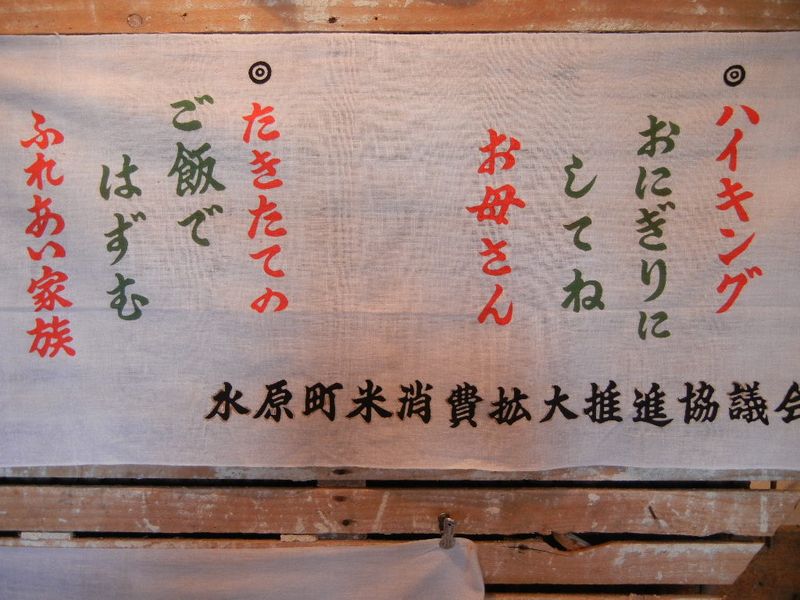 ◎ハイキング
おにぎりに
してね
お母さん
◎たきたての
ご飯で
はずむ
ふれあい家族
水原町米消費拡大推進協議会